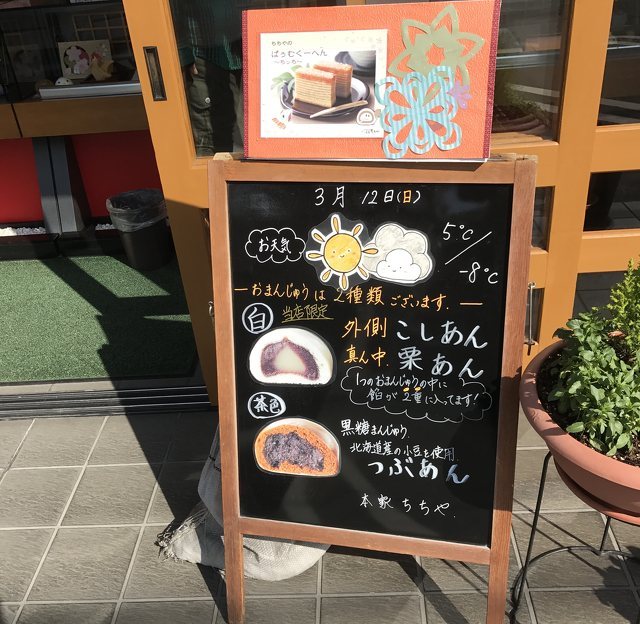 ちちやの
ばぅむくーへん
3月 12日(日)
お天気
5℃/-8℃
ーおまんじゅうは2種類ございます.ー
当店限定
白
外側 こしあん
真ん中. 栗あん
1つのおまんじゅうの中に
餡が二重に入ってます!
茶色
黒糖まんじゅう
北海道産の小豆を使用.
つぶあん
本家ちちや.